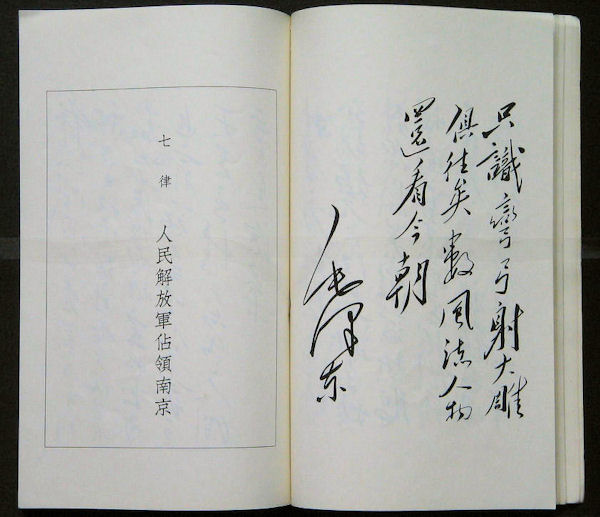 只識彎弓射大雕
俱往矣數風流人物
還看今朝
毛泽东
七律
人民解放軍佔領南京